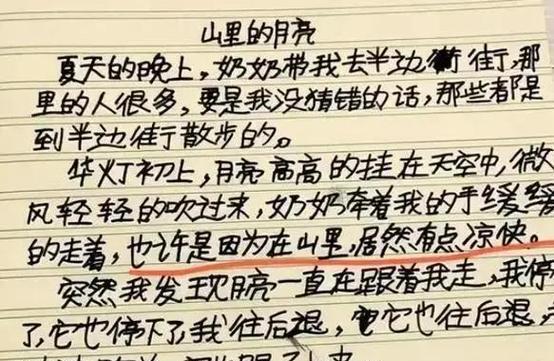 山里的月亮
夏天的晚上，奶奶带我去半边街街，那
里的人很多，要是我没猜错的话，那些都是
到半边街散步的。
华灯初上，月亮高高的挂在天空中，微
风轻轻的吹过来，奶奶牵着我的手缓缓
的走着，也许是因为在山里，居然有点凉快。
突然我发现月亮一直在跟着我走，我停
了，它也停下了，我往后退，它也往后退，